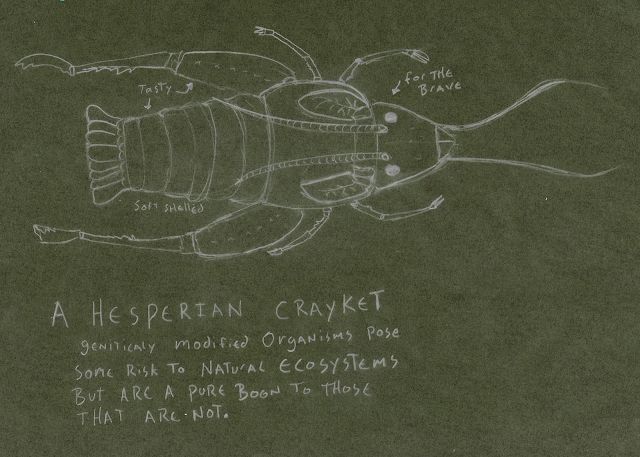 for THE
BRAVE
Tasty
Soft shelled
A HESPERIAN CRAYKET
geniticaly modified Organisms Pose
Some Risk To Natural Ecosystems
But ARE A PURE BOON TO THOSE
THAT ARE NOT.